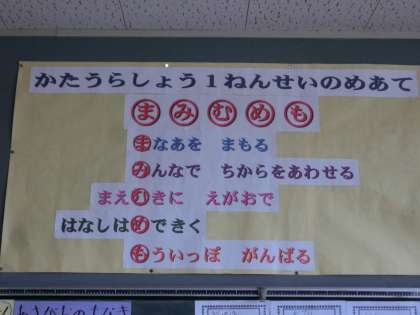 かたうらしょう１ねんせいのめあて
まみむめも
まなあを　まもる
みんなで　ちからをあわせる
まえむきに　えがおで
はなしはめできく
もういっぽ　がんばる